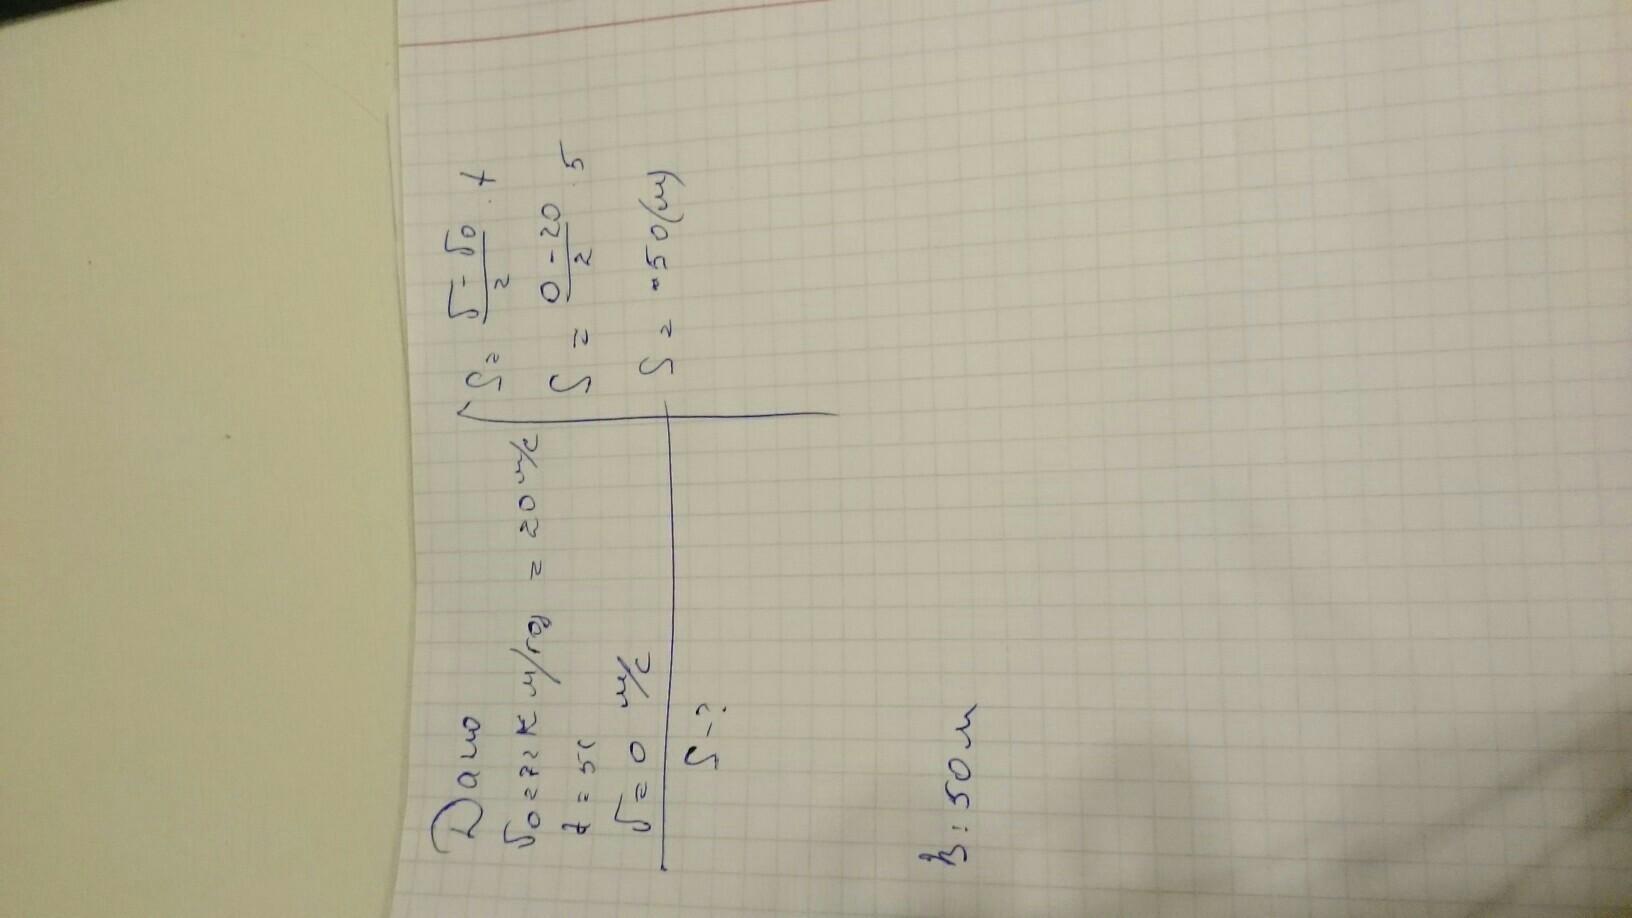 Дано
v₀ = 72 км/год = 20 м/с
t = 5с
v = 0 м/с
S - ?
S = (v - v₀)/2 · t
S = (0 - 20)/2 · 5
S = -50 (м)
В: 50м